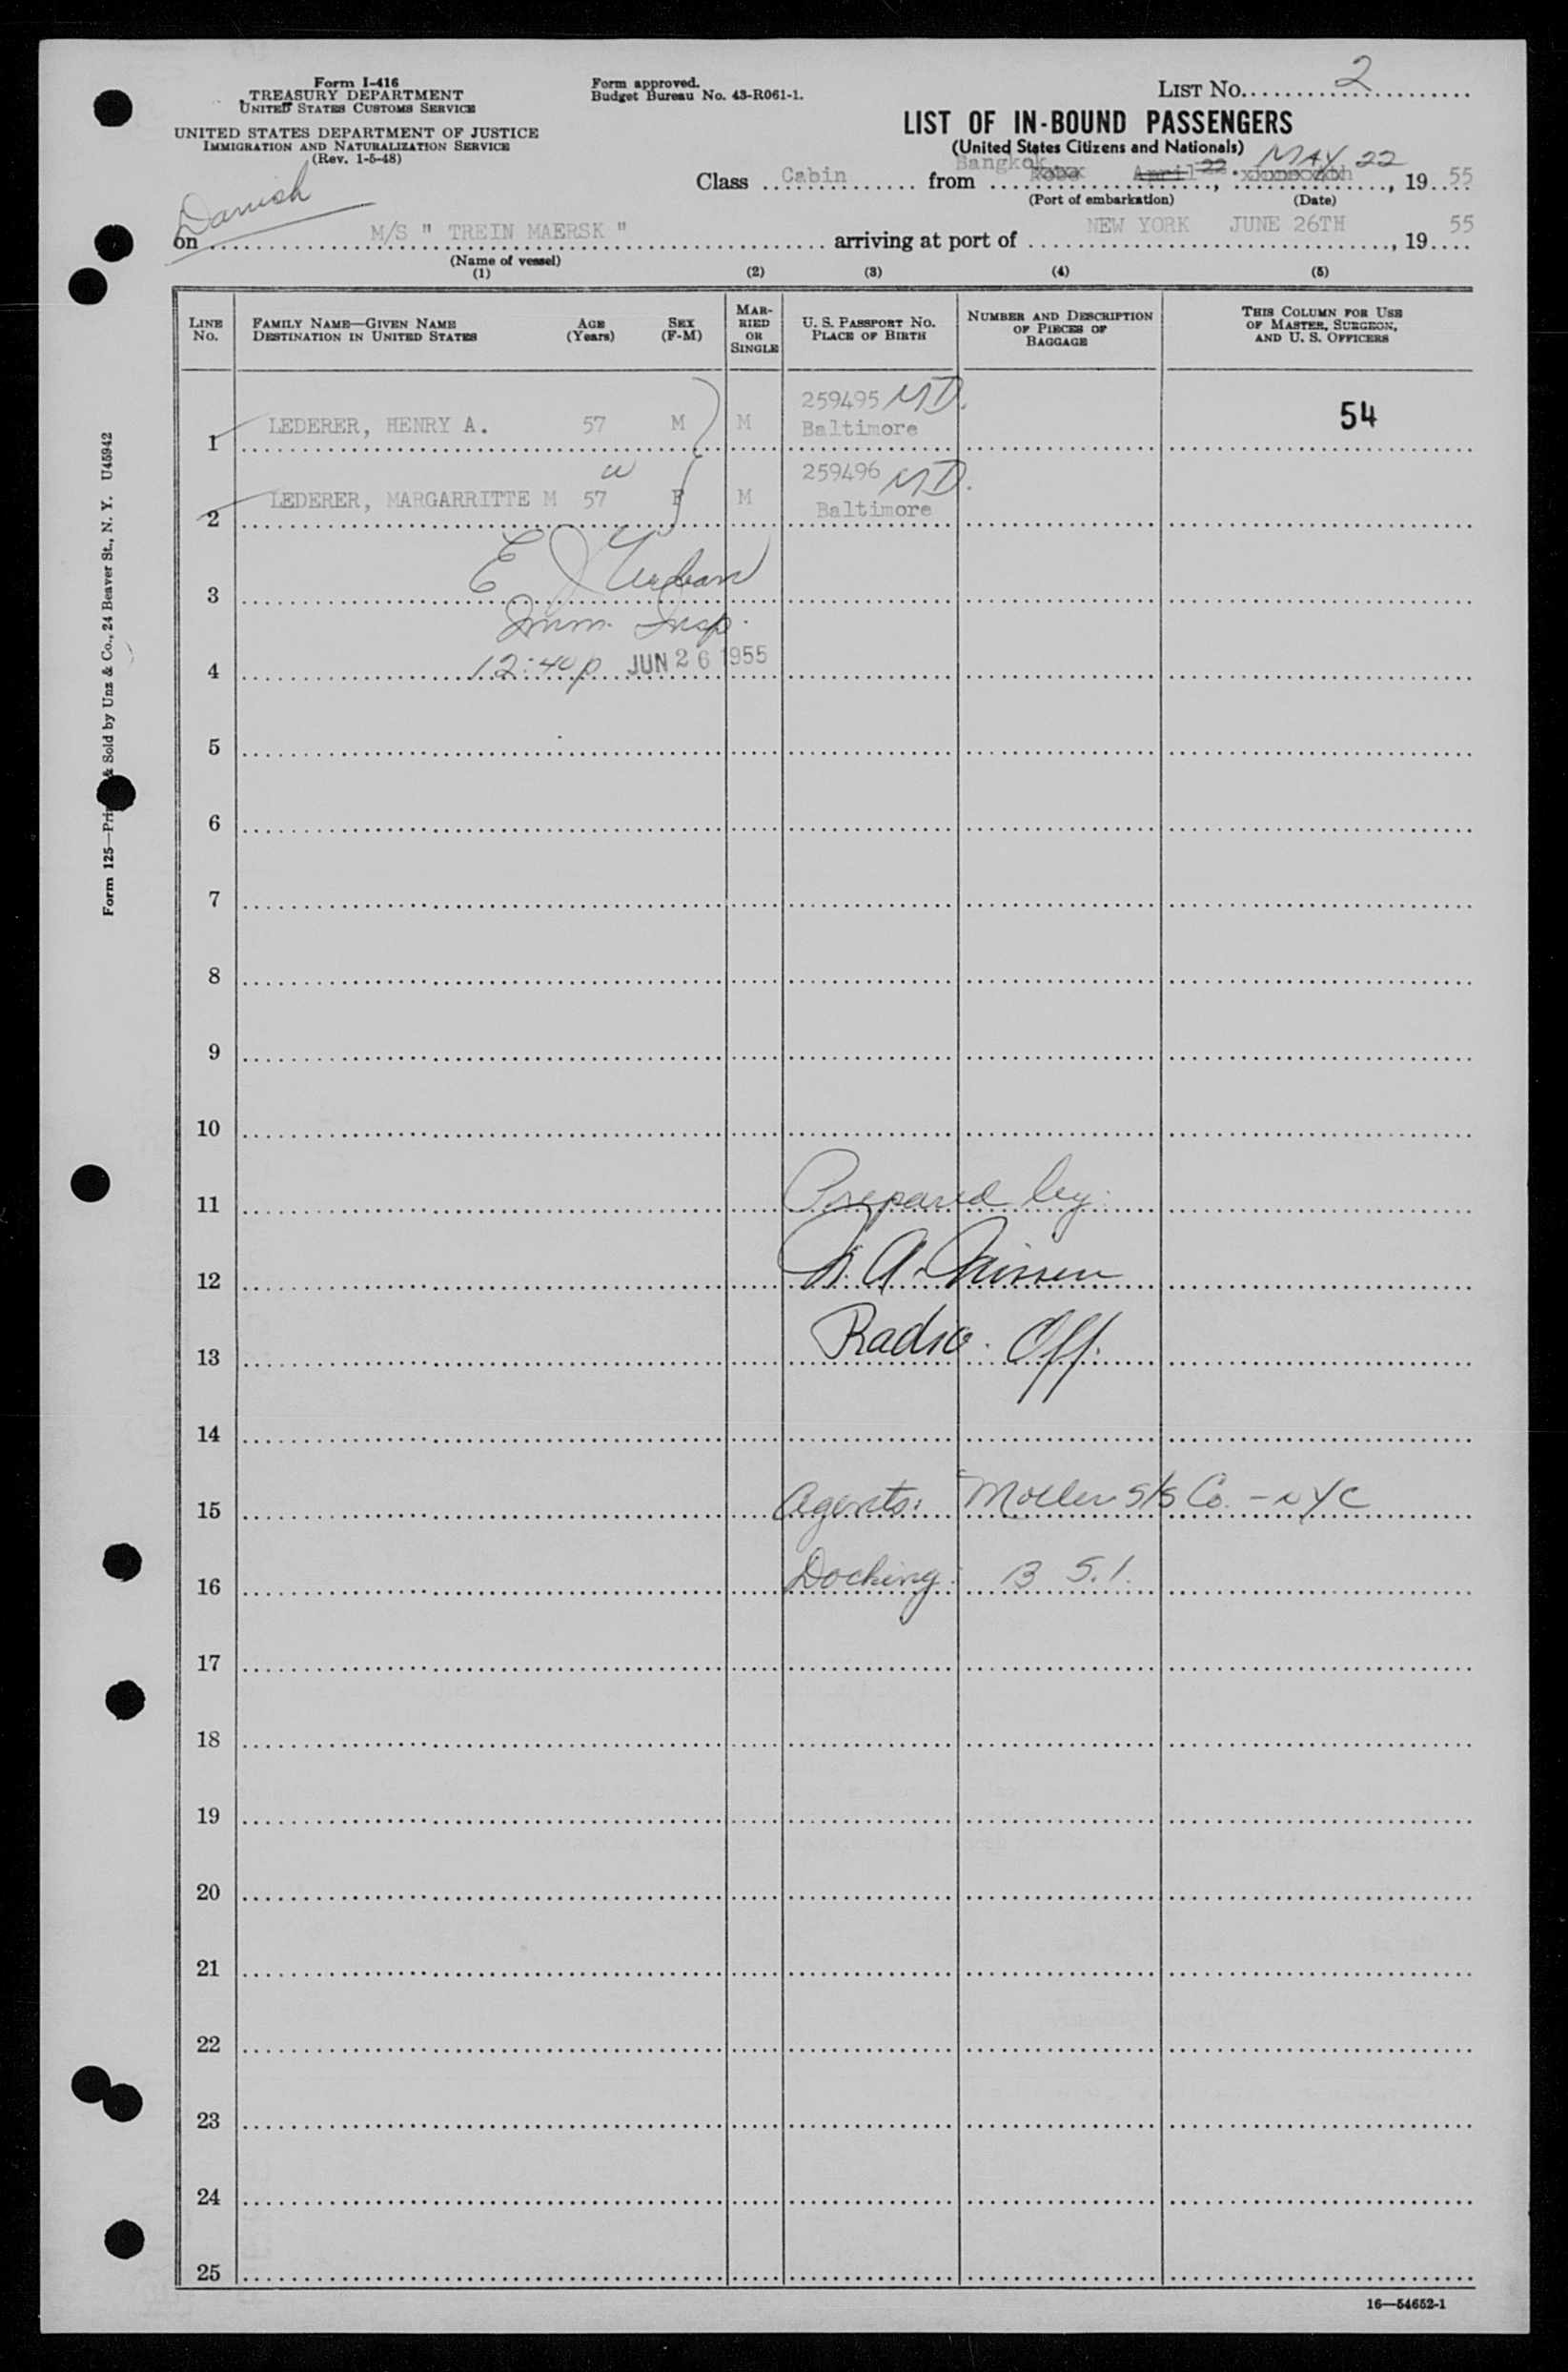 Form I-416
TREASURY DEPARTMENT
UNITED STATES CUSTOMS SERVICE
UNITED STATES DEPARTMENT OF JUSTICE
IMMIGRATION AND NATURALIZATION SERVICE
(Rev. 1-5-48)
Form approved.
Budget Bureau No. 43-R061-1.
LIST NO. 2
LIST OF IN-BOUND PASSENGERS
(United States Citizens and Nationals)
Danish
Class Cabin from Bangkok April 22 MAY 22, 1955
(Port of embarkation) (Date)
on M/S " TREIN MAERSK " arriving at port of NEW YORK JUNE 26TH, 1955
(Name of vessel)
(1) (2) (3) (4) (5)
LINE No.
FAMILY NAME—GIVEN NAME
DESTINATION IN UNITED STATES
AGE (Years)
SEX (F-M)
MARRIED OR SINGLE
U. S. PASSPORT NO.
PLACE OF BIRTH
NUMBER AND DESCRIPTION OF PIECES OF BAGGAGE
THIS COLUMN FOR USE OF MASTER, SURGEON, AND U. S. OFFICERS
1 LEDERER, HENRY A. 57 M M 259495 MD. Baltimore 54
w
2 LEDERER, MARGARRITTE M 57 F M 259496 MD. Baltimore
3 E J
Imm. Insp.
4 12:40p JUN 26 1955
5
6
7
8
9
10
11 Prepared by:
12
13 Radio Off.
14
15 Agents: Moller S/S Co. - NYC
16 Docking: B S.I.
17
18
19
20
21
22
23
24
25
16—54652-1
Form 125—Pri & Sold by Unz & Co., 24 Beaver St., N. Y. U45942